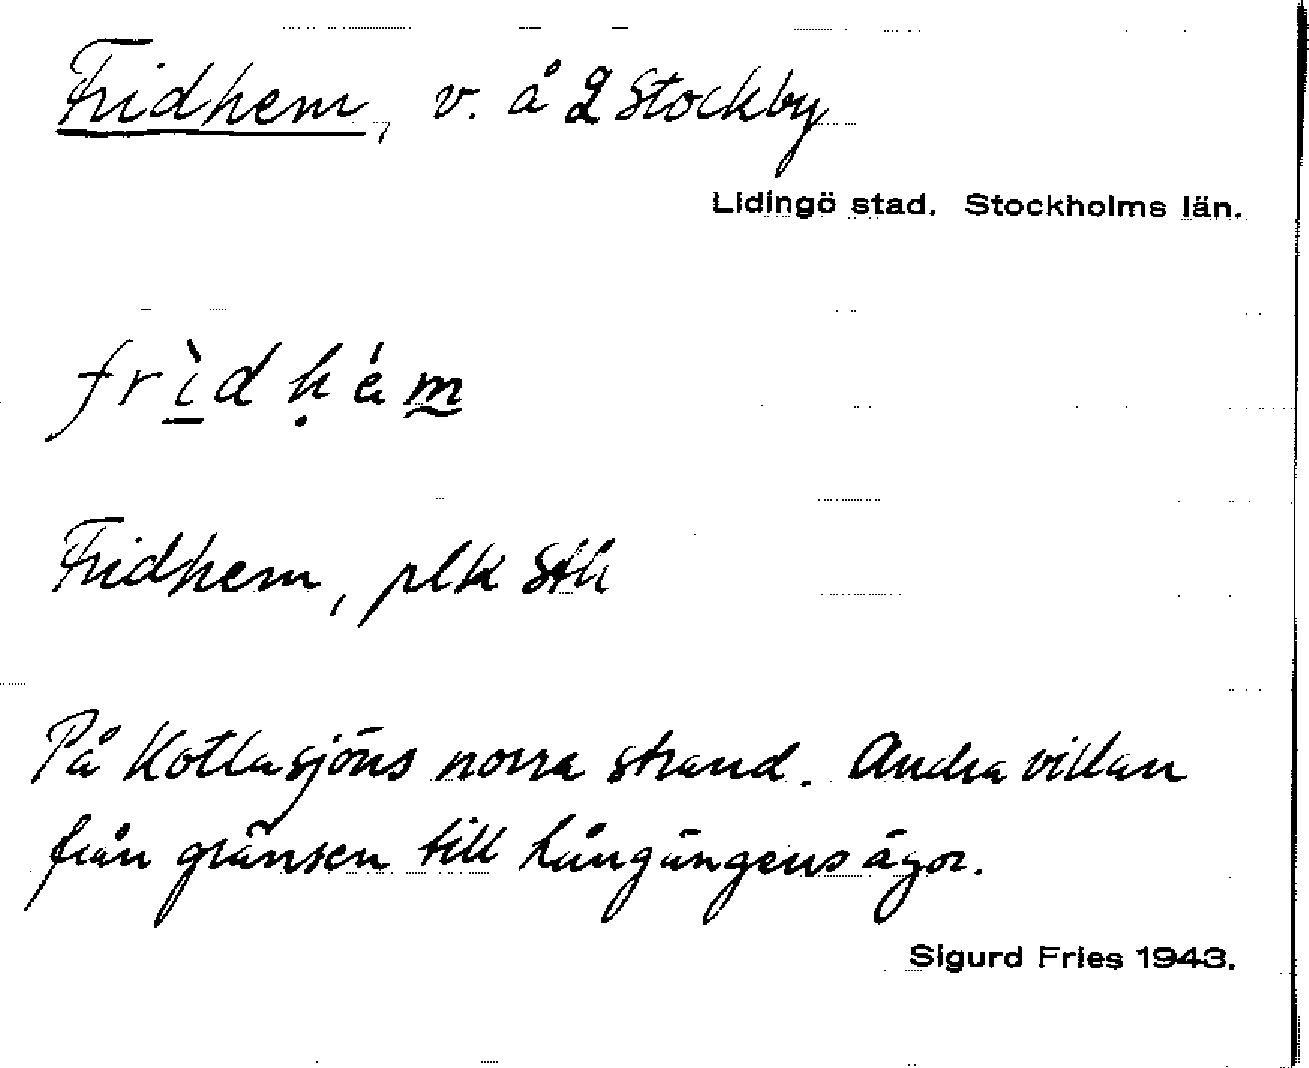 Fridhem, v. å 2 Stockby
Lidingö stad. Stockholms län.
frìdḥám
Fridhem, plk Sth
På Kottlasjöns norra strand. Andra villan
från gränsen till Långängens ägor.
Sigurd Fries 1943.